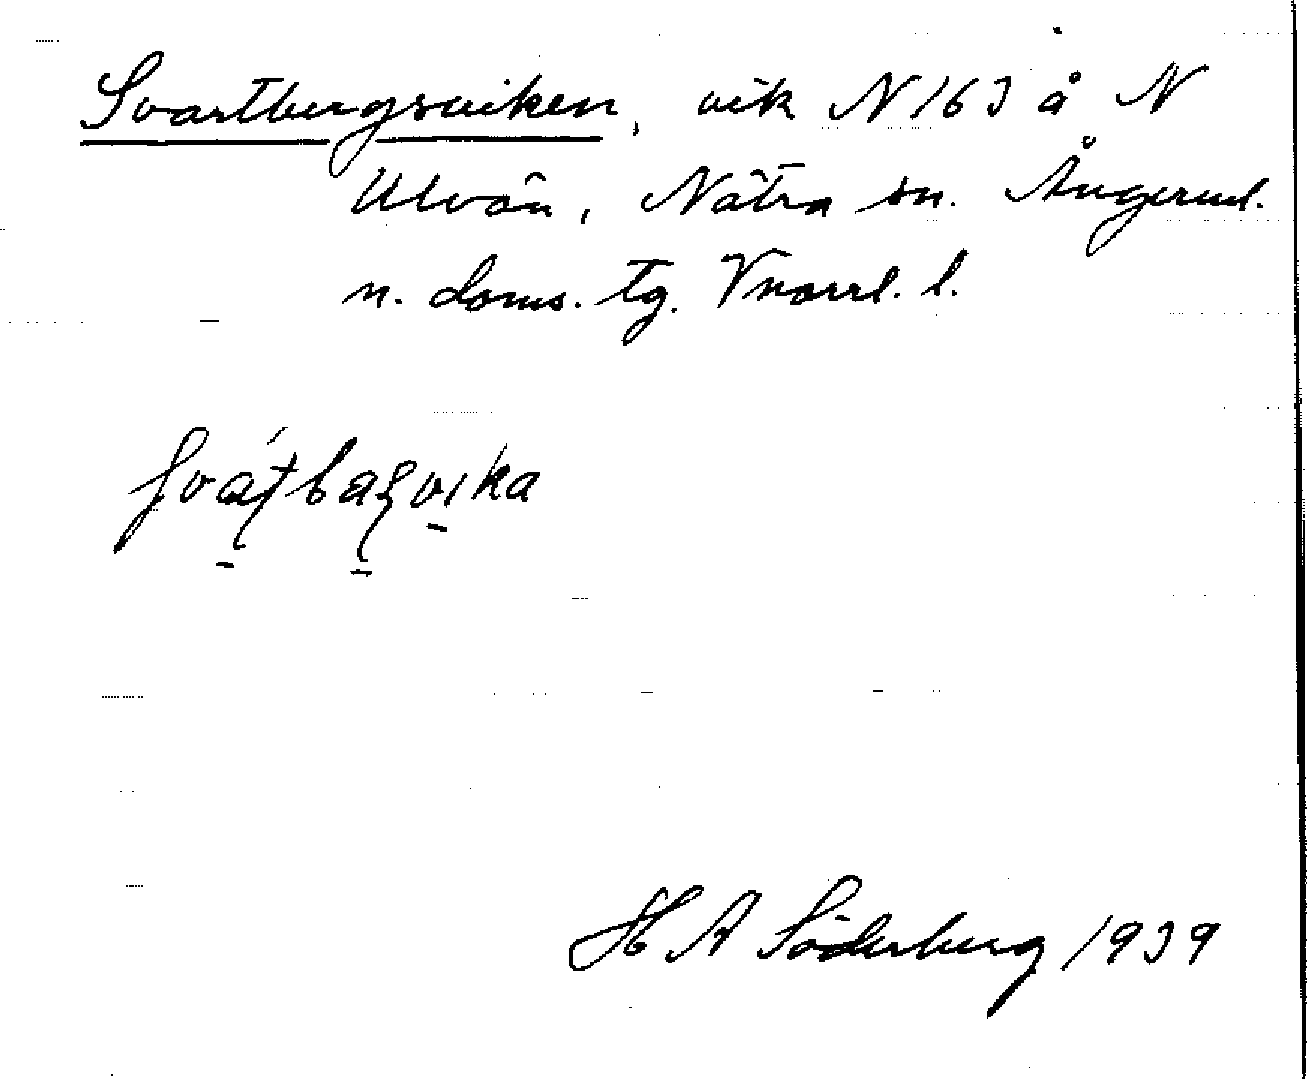 Svartbergsviken, vik N 163 å N
Ulvön, Nätra sn. Ångerml.
n. doms. tg. Vnorrl. l.
H A Söderberg 1939